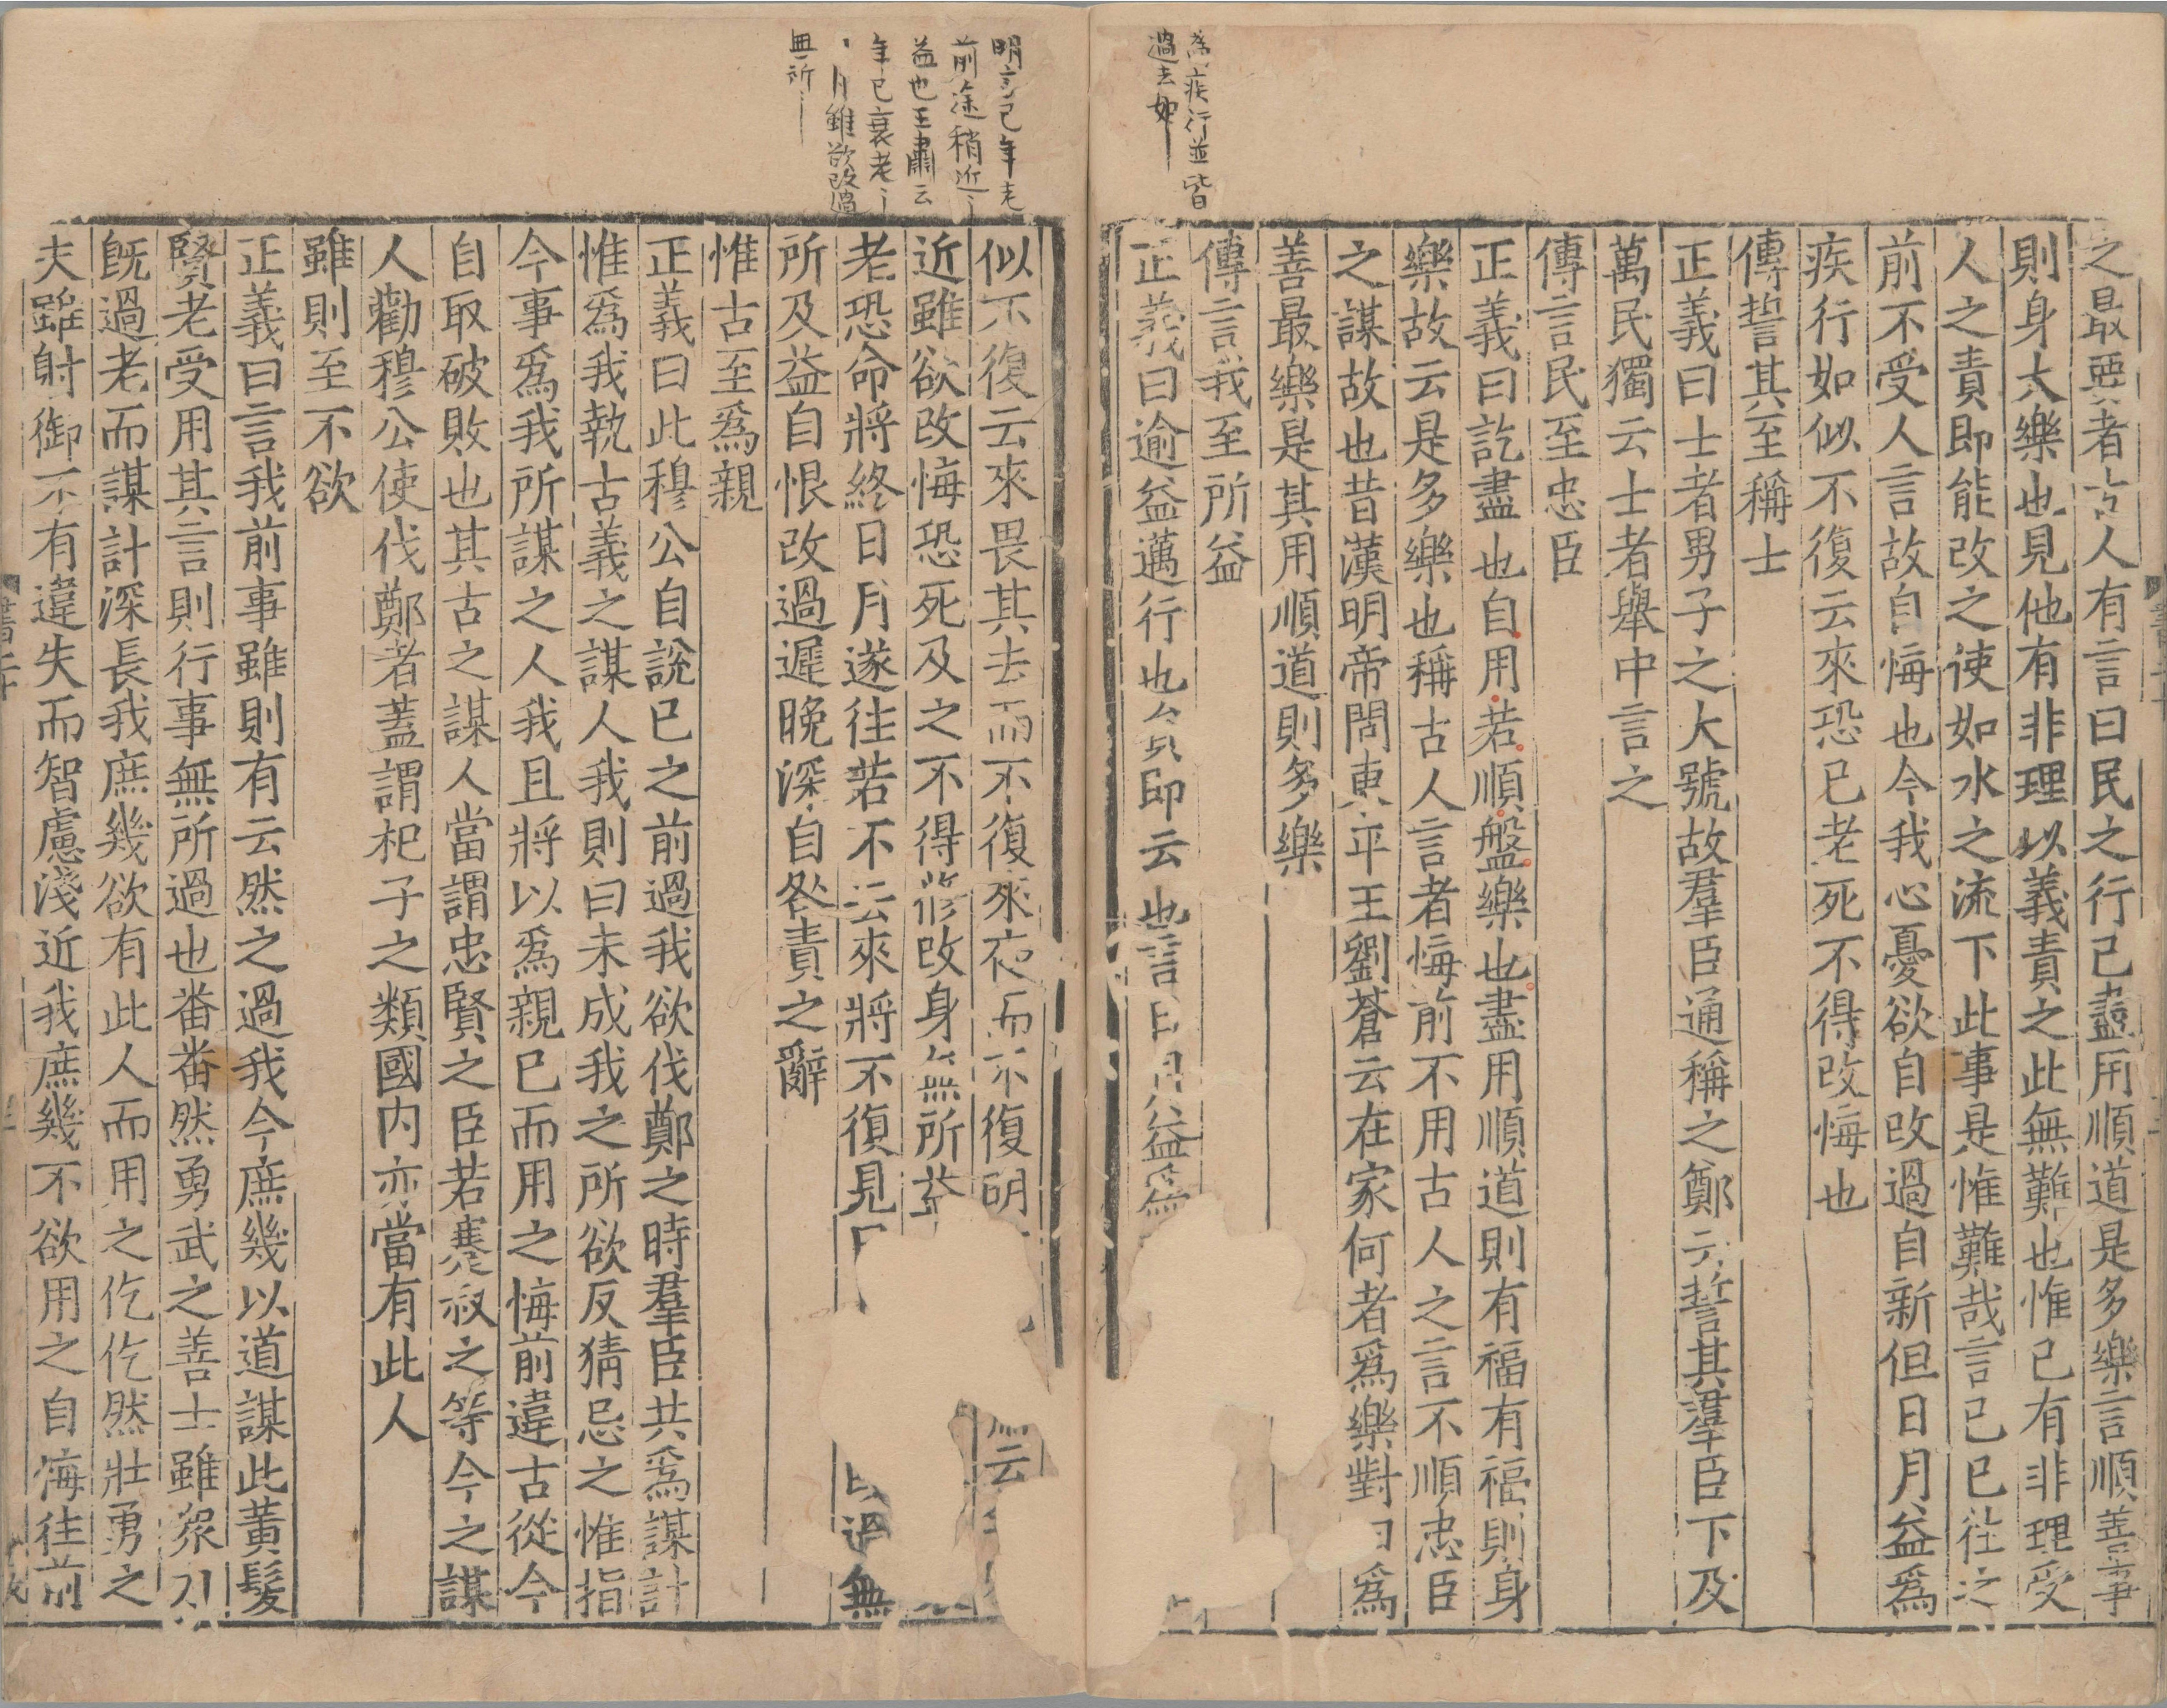 為疾行並皆
過去如
之最要者古人有言曰民之行己盡用順道是多樂言順善事
則身大樂也見他有非理以義責之此無難也惟己有非理受
人之責即能改之使如水之流下此事是惟難哉言已已往之
前不受人言故自悔也今我心憂欲自改過自新但日月益爲
疾行如似不復云來恐已老死不得改悔也
傳誓其至稱士
正義曰士者男子之大號故羣臣通稱之鄭云誓其羣臣下及
萬民獨云士者舉中言之
傳言民至忠臣
正義曰訖盡也自用若順盤樂也盡用順道則有福有福則身
樂故云是多樂也稱古人言者悔前不用古人之言不順忠臣
之謀故也昔漢明帝問東平王劉蒼云在家何者爲樂對曰爲
善最樂是其用順道則多樂
傳言我至所益
正義曰逾益邁行也員即云也言日月益爲
明言己年老
前途稍近
益也王肅云
年已衰老
月雖欲改過
無所
似不復云來畏其去而不復來夜而不復明
云
近雖欲改悔恐死及之不得修改身無所益
老恐命將終日月遂往若不云來將不復見日
過無
所及益自恨改過遲晚深自咎責之辭
惟古至爲親
正義曰此穆公自說已之前過我欲伐鄭之時羣臣共爲謀計
惟爲我執古義之謀人我則曰未成我之所欲反猜忌之惟指
今事爲我所謀之人我且將以爲親已而用之悔前違古從今
自取破敗也其古之謀人當謂忠賢之臣若蹇叔之等今之謀
人勸穆公使伐鄭者蓋謂杞子之類國內亦當有此人
雖則至不欲
正義曰言我前事雖則有云然之過我今庶幾以道謀此黃髮
賢老受用其言則行事無所過也番番然勇武之善士雖衆力
既過老而謀計深長我庶幾欲有此人而用之仡仡然壯勇之
夫雖射御不有違失而智慮淺近我庶幾不欲用之自悔往前